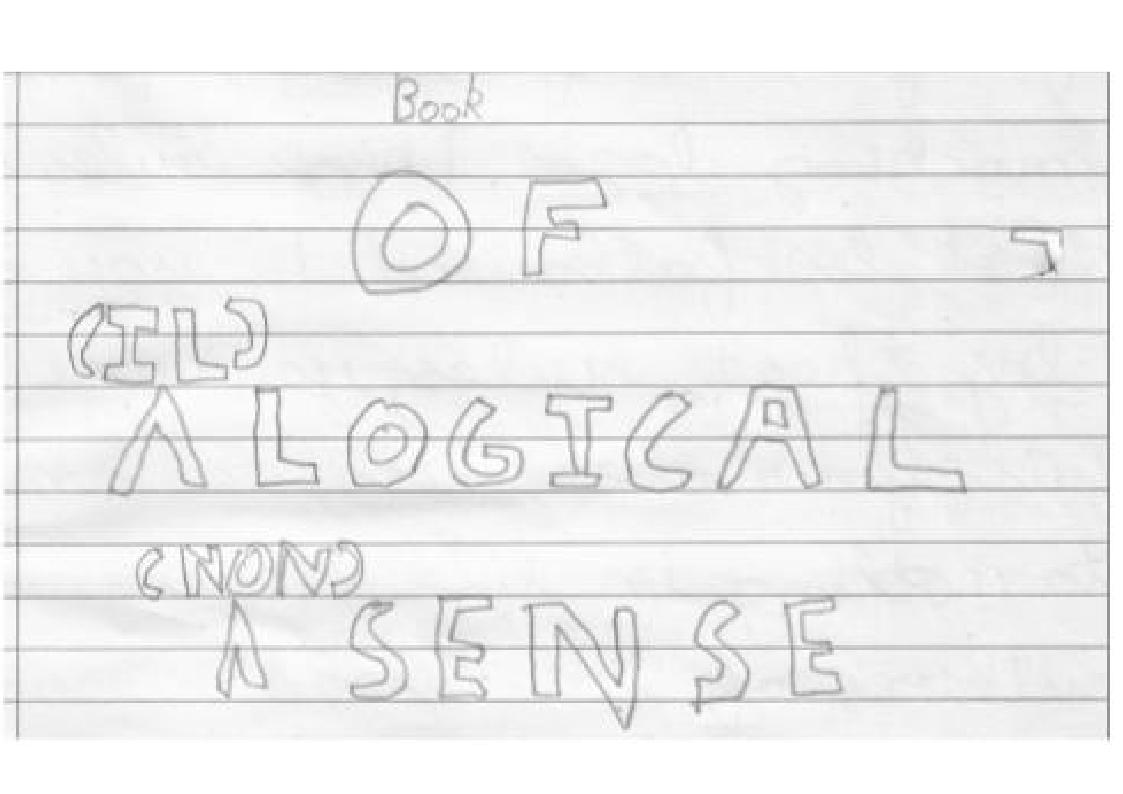 Book
OF
(IL)
Λ LOGICAL
(NON)
Λ SENSE